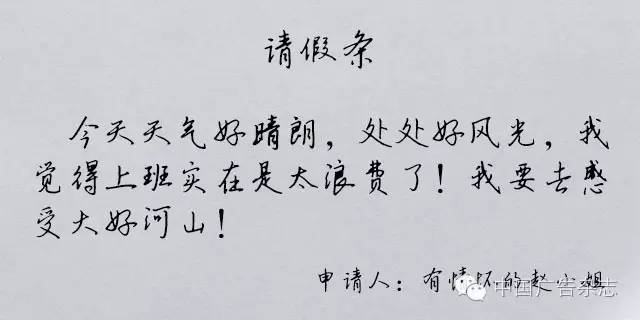 请假条
今天天气好晴朗，处处好风光，我
觉得上班实在是太浪费了！我要去感
受大好河山！
申请人：有情怀的赵小姐
中国广告杂志